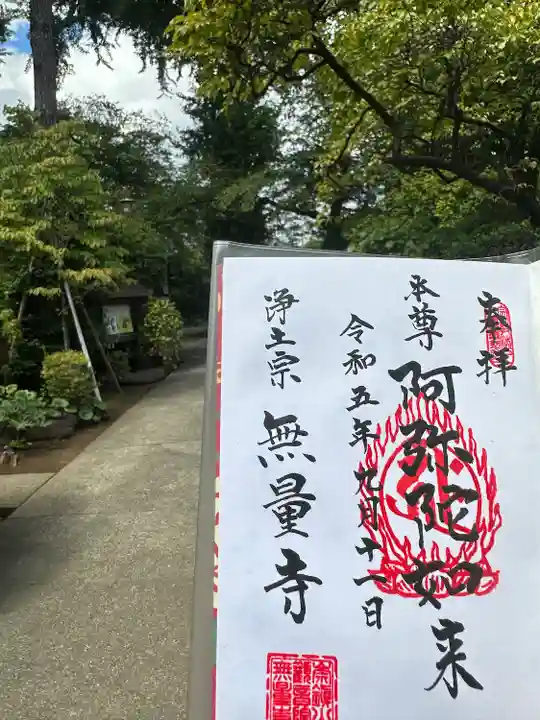 奉拝
本尊
阿弥陀如来
令和五年九月十一日
浄土宗 無量寺